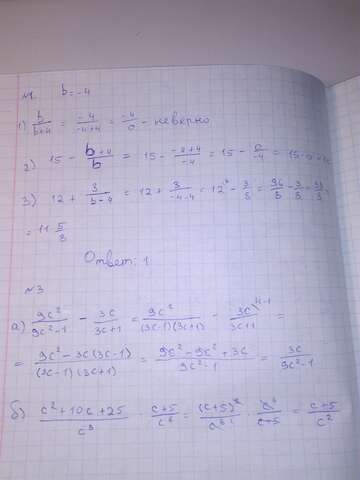 №1. b = -4
1) b/(b+4) = -4/(-4+4) = -4/0 - неверно
2) 15 - (b+4)/b = 15 - (-4+4)/-4 = 15 - 0/-4 = 15-0 =
3) 12 + 3/(b-4) = 12 + 3/(-4-4) = 12 - 3/8 = 96/8 - 3/8 =
= 11 5/8
Ответ: 1
№3
а) 9c²/(9c²-1) - 3c/(3c+1) = 9c²/((3c-1)(3c+1)) - 3c/(3c+1) =
= (9c² - 3c(3c-1))/((3c-1)(3c+1)) = (9c² - 9c² + 3c)/(9c²-1) = 3c/(9c²-1)
б) (c²+10c+25)/c³ (c+5)/c = (c+5)²/c³ · c/(c+5) = (c+5)/c²